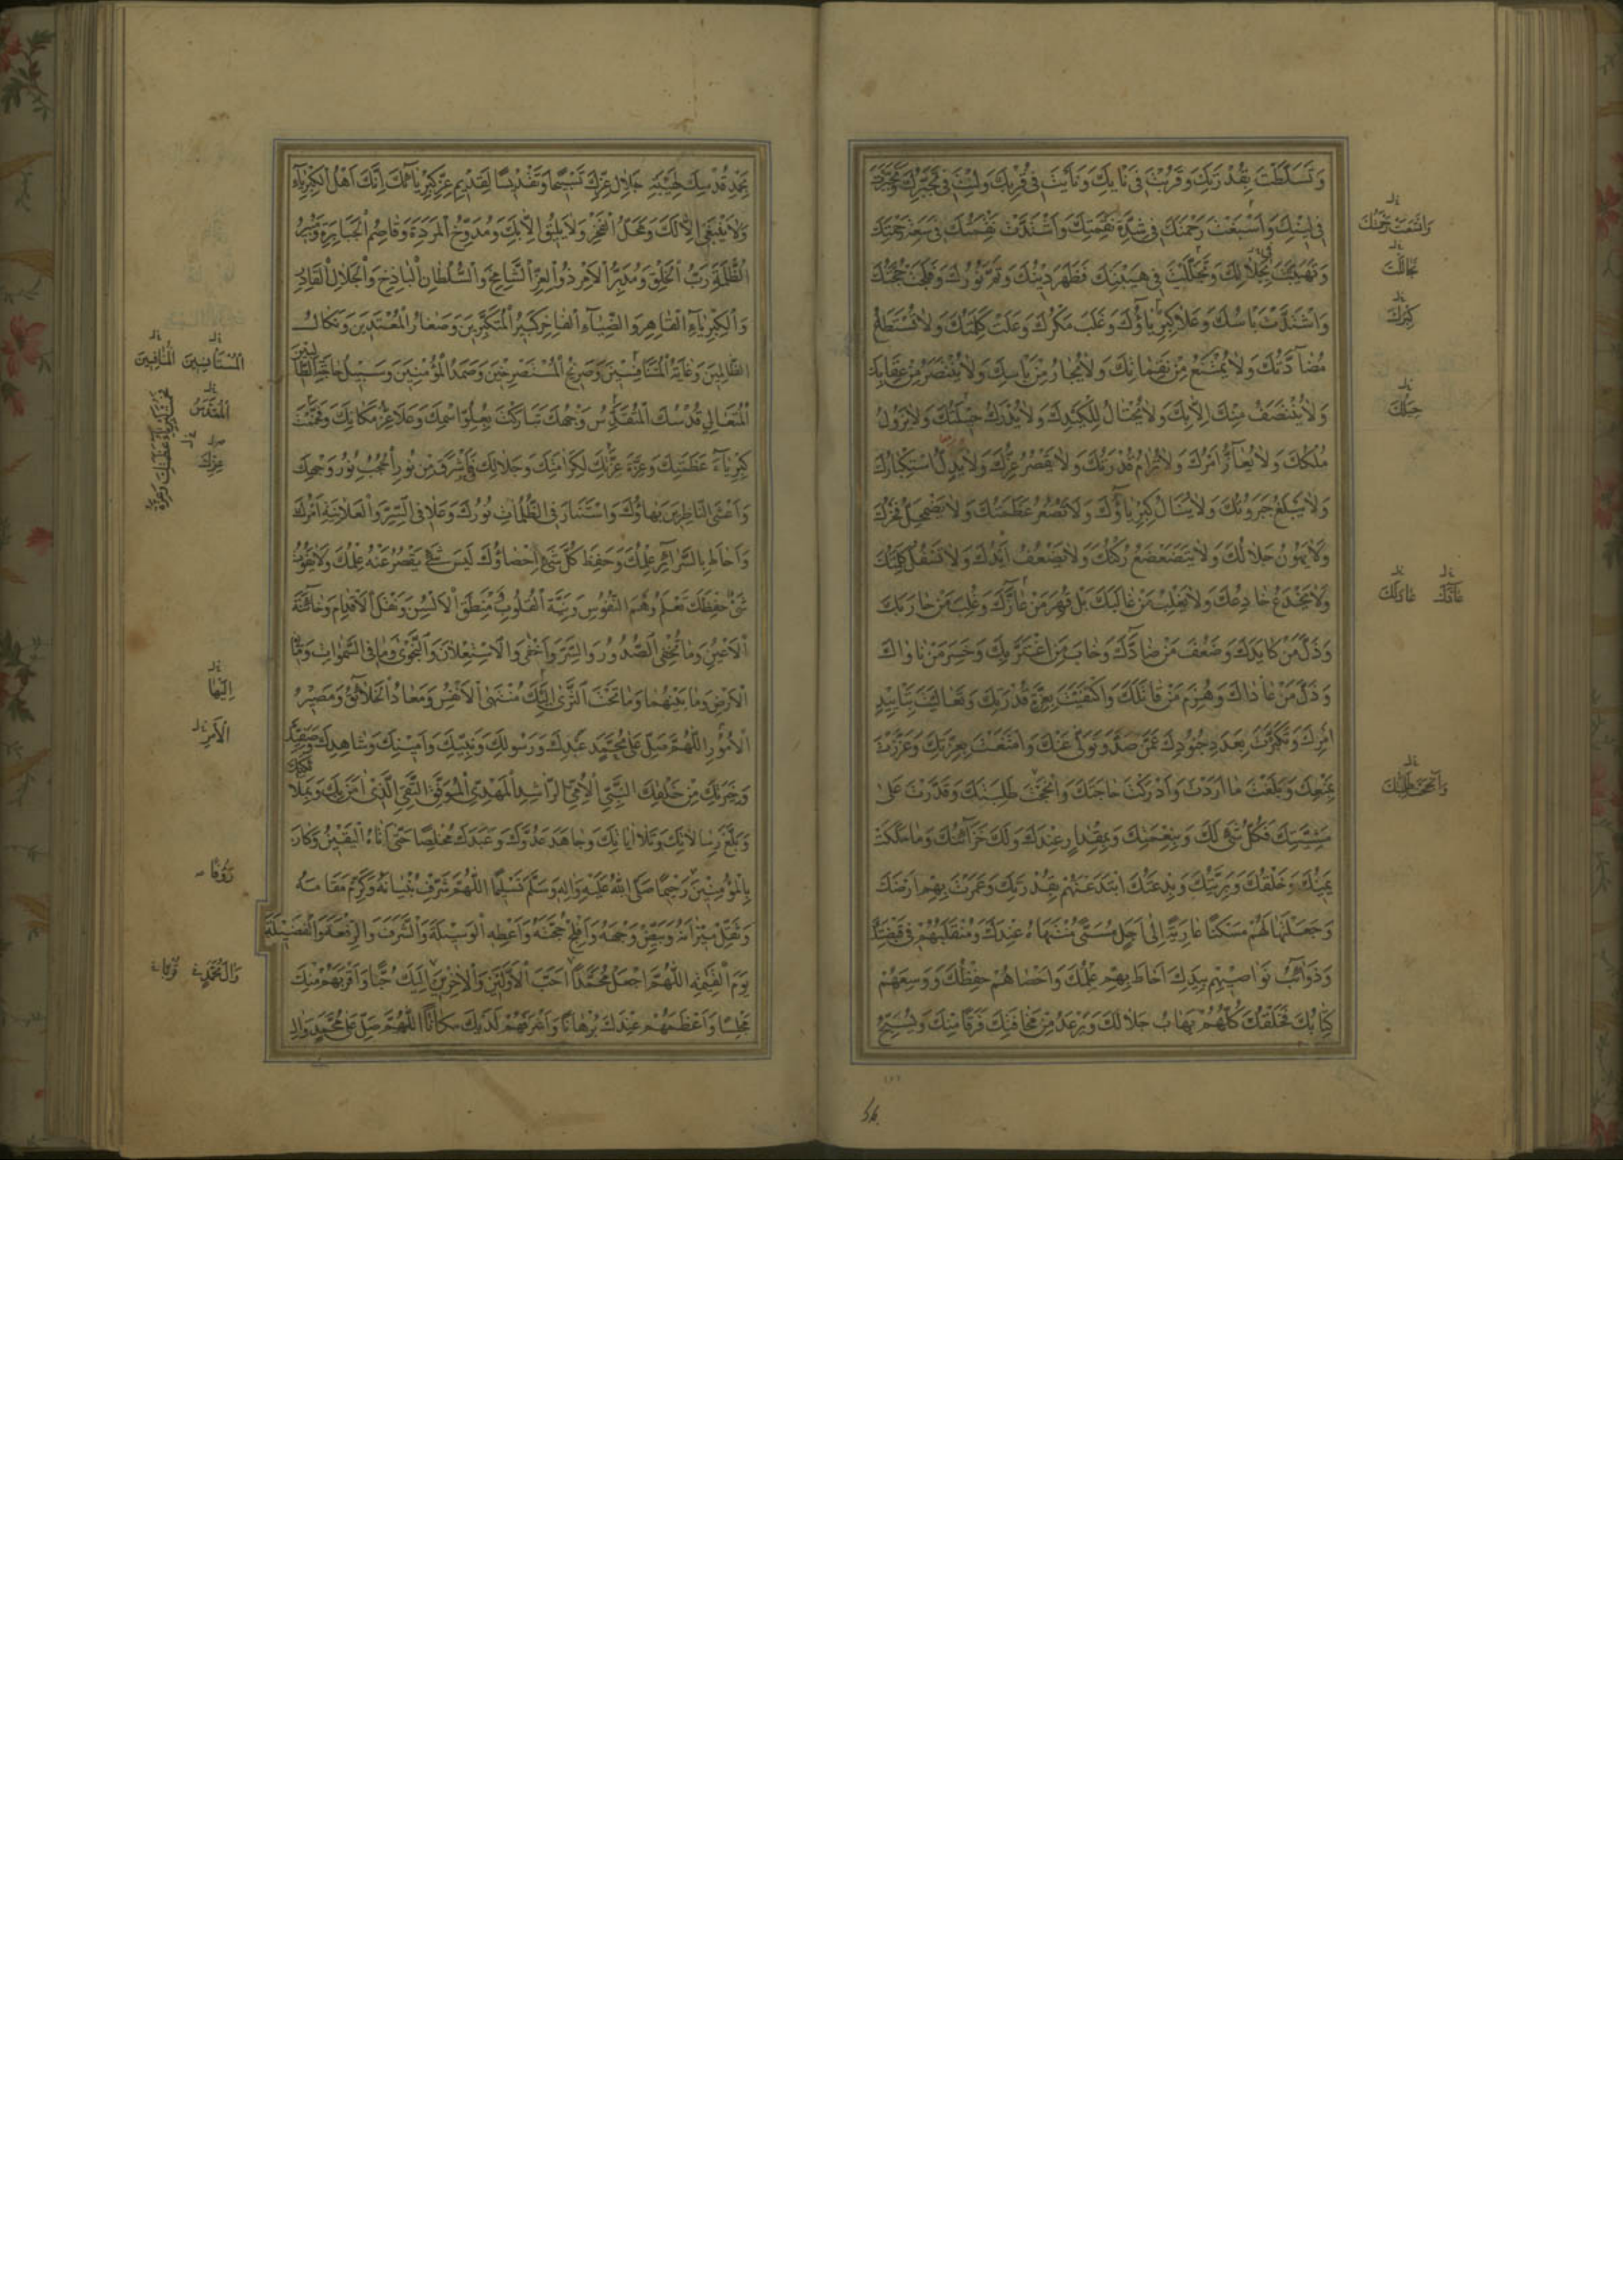 وَتَسَلَّطْتَ بِقُدْرَتِكَ وَقَرُبْتَ فِي نَأْيِكَ وَنَأَيْتَ فِي قُرْبِكَ وَلِنْتَ فِي تَجَبُّرِكَ وَتَجَبَّرْتَ
فِي لِينِكَ وَاَسْبَغْتَ رَحْمَتَكَ فِي شِدَّةِ نَقِمَتِكَ وَاشْتَدَّتْ نَقِمَتُكَ فِي سَعَةِ رَحْمَتِكَ
وَتَهَيَّبْتَ بِجَلَالِكَ وَتَجَلَّلْتَ فِي هَيْبَتِكَ فَظَهَرَ دِينُكَ وَتَمَّ نُورُكَ وَفَلَجَتْ حُجَّتُكَ
وَاشْتَدَّ بَأْسُكَ وَعَلَا كِبْرِيَاؤُكَ وَغَلَبَ مَكْرُكَ وَعَلَتْ كَلِمَتُكَ وَلَا تُسْتَطَاعُ
مُضَادَّتُكَ وَلَا يُمْتَنَعُ مِنْ نَقِمَاتِكَ وَلَا يُجَارُ مِنْ بَأْسِكَ وَلَا يُنْتَصَرُ مِنْ عِقَابِكَ
وَلَا يُنْتَصَفُ مِنْكَ اِلَّا بِكَ وَلَا يُحْتَالُ لِكَيْدِكَ وَلَا يُدْرَكُ حِيلَتُكَ وَلَا يَزُولُ
مُلْكُكَ وَلَا يُعَازُّ اَمْرُكَ وَلَا تُرَامُ قُدْرَتُكَ وَلَا يَقْصُرُ عِزُّكَ وَلَا يَذِلُّ اسْتِكْبَارُكَ
وَلَا يُبْلَغُ جَبَرُوتُكَ وَلَا يُنَالُ كِبْرِيَاؤُكَ وَلَا تَصْغُرُ عَظَمَتُكَ وَلَا يَضْمَحِلُّ فَخْرُكَ
وَلَا يَهُونُ جَلَالُكَ وَلَا يَتَضَعْضَعُ رُكْنُكَ وَلَا تَضْعُفُ اَيْدُكَ وَلَا تَسْفُلُ كَلِمَتُكَ
وَلَا يُخْدَعُ خَادِعُكَ وَلَا يَغْلِبُ مَنْ غَالَبَكَ بَلْ قُهِرَ مَنْ عَازَّكَ وَغُلِبَ مَنْ حَارَبَكَ
وَذَلَّ مَنْ كَايَدَكَ وَضَعُفَ مَنْ ضَادَّكَ وَخَابَ مَنِ اغْتَرَّ بِكَ وَخَسِرَ مَنْ نَاوَاكَ
وَذَلَّ مَنْ عَادَاكَ وَهُزِمَ مَنْ قَاتَلَكَ وَاكْتَفَيْتَ بِعِزَّةِ قُدْرَتِكَ وَتَعَالَيْتَ بِتَأْيِيدِ
اَمْرِكَ وَتَكَبَّرْتَ بِعَدَدِ جُنُودِكَ عَمَّنْ صَدَّ وَتَوَلَّى عَنْكَ وَامْتَنَعْتَ بِعِزَّتِكَ وَعَزَزْتَ
بِمَنْعِكَ وَبَلَغْتَ مَا اَرَدْتَ وَاَدْرَكْتَ حَاجَتَكَ وَاَنْجَحْتَ طَلِبَتَكَ وَقَدَرْتَ عَلَى
مَشِيَّتِكَ فَكُلُّ شَيْءٍ لَكَ وَبِنِعْمَتِكَ وَبِمِقْدَارٍ عِنْدَكَ وَلَكَ خَزَائِنُكَ وَمَا مَلَكَتْ
يَمِينُكَ وَخَلْقُكَ وَبَرِيَّتُكَ وَبِدْعَتُكَ ابْتَدَعْتَهُمْ بِقُدْرَتِكَ وَعَمَرْتَ بِهِمْ اَرْضَكَ
وَجَعَلْتَهَا لَهُمْ مَسْكَنًا عَارِيَةً اِلَى اَجَلٍ مُسَمًّى مُنْتَهَاهُ عِنْدَكَ وَمُنْقَلَبُهُمْ فِي قَبْضَتِكَ
وَذَوَائِبُ نَوَاصِيهِمْ بِيَدِكَ اَحَاطَ بِهِمْ عِلْمُكَ وَاَحْصَاهُمْ حِفْظُكَ وَوَسِعَهُمْ
كِتَابُكَ فَخَلْقُكَ كُلُّهُمْ يَهَابُ جَلَالَكَ وَيَرْعَدُ مِنْ مَخَافَتِكَ فَرَقًا مِنْكَ وَيُسَبِّحُ
وَاتَّسَعَتْ رَحْمَتُكَ
تَجَالَلْتَ
كِبْرُكَ
حِيَلُكَ
عَانَدَكَ
بِحَمْدِ قُدْسِكَ لِهَيْبَةِ جَلَالِ عِزِّكَ تَسْبِيحًا وَتَقْدِيسًا لِقَدِيمِ عِزِّ كِبْرِيَائِكَ اِنَّكَ اَهْلُ الْكِبْرِيَاءِ
وَلَا يَنْبَغِي اِلَّا لَكَ وَمَحَلُّ الْفَخْرِ وَلَا يَلِيقُ اِلَّا بِكَ وَمُدَوِّخُ الْمَرَدَةِ وَقَاصِمُ الْجَبَابِرَةِ وَمُبِيرُ
الظَّلَمَةِ رَبُّ الْخَلْقِ وَمُدَبِّرُ الْاَمْرِ ذُو الْعِزِّ الشَّامِخِ وَالسُّلْطَانِ الْبَاذِخِ وَالْجَلَالِ الْقَادِرِ
وَالْكِبْرِيَاءِ الْقَاهِرِ وَالضِّيَاءِ الْفَاخِرِ كَبِيرُ الْمُتَكَبِّرِينَ وَصَغَارُ الْمُعْتَدِينَ وَنَكَالُ
الظَّالِمِينَ وَغَايَةُ الْمُتَنَافِسِينَ وَصَرِيخُ الْمُسْتَصْرِخِينَ وَصَمَدُ الْمُؤْمِنِينَ وَسَبِيلُ حَاجَةِ الطَّالِبِينَ
الْمُتَعَالِي قُدْسُكَ الْمُتَقَدِّسُ وَجْهُكَ تَبَارَكْتَ بِعُلُوِّ اسْمِكَ وَعَلَا عِزُّ مَكَانِكَ وَفَخُمَتْ
كِبْرِيَاءُ عَظَمَتِكَ وَعِزَّةُ عِزَّتِكَ لِكَرَامَتِكَ وَجَلَالِكَ فَاَشْرَقَ مِنْ نُورِ الْحُجُبِ نُورُ وَجْهِكَ
وَاَغْشَى النَّاظِرِينَ بَهَاؤُكَ وَاسْتَنَارَ فِي الظُّلُمَاتِ نُورُكَ وَعَلَا فِي السِّرِّ وَالْعَلَانِيَةِ اَمْرُكَ
وَاَحَاطَ بِالسَّرَائِرِ عِلْمُكَ وَحَفِظَ كُلَّ شَيْءٍ اِحْصَاؤُكَ لَيْسَ شَيْءٌ يَقْصُرُ عَنْهُ عِلْمُكَ وَلَا يَفُوتُ
شَيْءٌ حِفْظَكَ تَعْلَمُ وَهْمَ النُّفُوسِ وَنِيَّةَ الْقُلُوبِ وَمَنْطِقَ الْاَلْسُنِ وَنَقْلَ الْاَقْدَامِ وَخَائِنَةَ
الْاَعْيُنِ وَمَا تُخْفِي الصُّدُورُ وَالسِّرَّ وَاَخْفَى وَالْاِسْتِعْلَانَ وَالنَّجْوَى وَمَا فِي السَّمَوَاتِ وَمَا فِي
الْاَرْضِ وَمَا بَيْنَهُمَا وَمَا تَحْتَ الثَّرَى اِلَيْكَ مُنْتَهَى الْاَنْفُسِ وَمَعَادُ الْخَلَائِقِ وَمَصِيرُ
الْاُمُورِ اللَّهُمَّ صَلِّ عَلَى مُحَمَّدٍ عَبْدِكَ وَرَسُولِكَ وَنَبِيِّكَ وَاَمِينِكَ وَشَاهِدِكَ وَصَفِيِّكَ
وَخِيَرَتِكَ مِنْ خَلْقِكَ النَّبِيِّ الْاُمِّيِّ الرَّاشِدِ الْمَهْدِيِّ الْمُوَفَّقِ التَّقِيِّ الَّذِي اٰمَنَ بِكَ وَبِمَلَائِكَتِكَ
وَبَلَّغَ رِسَالَاتِكَ وَتَلَا اٰيَاتِكَ وَجَاهَدَ عَدُوَّكَ وَعَبَدَكَ مُخْلِصًا حَتَّى اَتَاهُ الْيَقِينُ وَكَانَ
بِالْمُؤْمِنِينَ رَحِيمًا صَلَّى اللهُ عَلَيْهِ وَاٰلِهِ وَسَلَّمَ تَسْلِيمًا اللَّهُمَّ شَرِّفْ بُنْيَانَهُ وَكَرِّمْ مَقَامَهُ
وَثَقِّلْ مِيزَانَهُ وَبَيِّضْ وَجْهَهُ وَاَفْلِجْ حُجَّتَهُ وَاَعْطِهِ الْوَسِيلَةَ وَالشَّرَفَ وَالرِّفْعَةَ وَالْفَضِيلَةَ
يَوْمَ الْقِيٰمَةِ اللَّهُمَّ اجْعَلْ مُحَمَّدًا اَحَبَّ الْاَوَّلِينَ وَالْاٰخِرِينَ اِلَيْكَ حُبًّا وَاَقْرَبَهُمْ مِنْكَ
مَجْلِسًا وَاَعْظَمَهُمْ عِنْدَكَ بُرْهَانًا وَاَشْرَفَهُمْ لَدَيْكَ مَكَانًا اللَّهُمَّ صَلِّ عَلَى مُحَمَّدٍ وَاٰلِ
الْمُقَدَّسُ
عِزِّكَ
اِلَيْهَا
الْاَمْرِ
رَؤُفًا